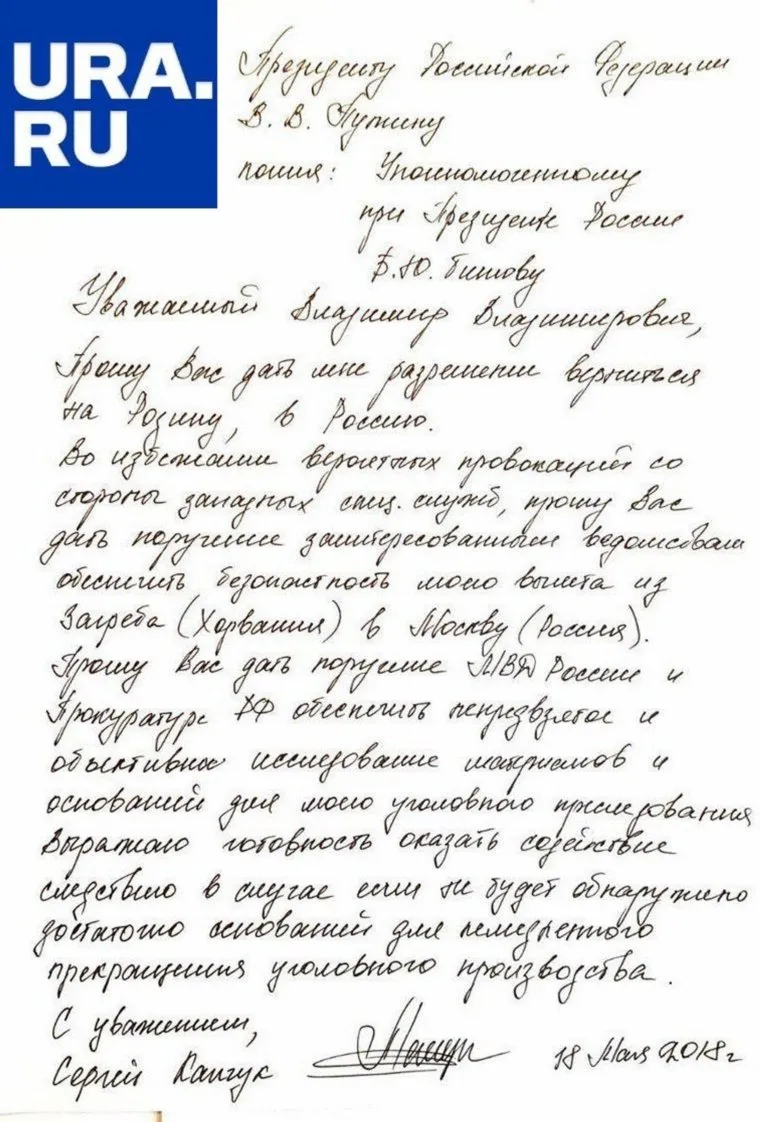 URA.
RU
Президенту Российской Федерации
В. В. Путину
копия: Уполномоченному
при Президенте России
Б.Ю. Титову
Уважаемый Владимир Владимирович,
Прошу Вас дать мне разрешение вернуться
на Родину, в Россию.
Во избежание вероятных провокаций со
стороны западных спец. служб, прошу Вас
дать поручение заинтересованным ведомствам
обеспечить безопастность моего вылета из
Загреба (Хорватия) в Москву (Россия).
Прошу Вас дать поручение МВД России и
Прокуратуре РФ обеспечить непредвзятое и
объективное исследование материалов и
оснований для моего уголовного преследования
Выражаю готовность оказать содействие
следствию в случае если не будет обнаружено
достаточно оснований для немедленного
прекращения уголовного производства.
С уважением,
Сергей Капчук
18 Мая 2018г